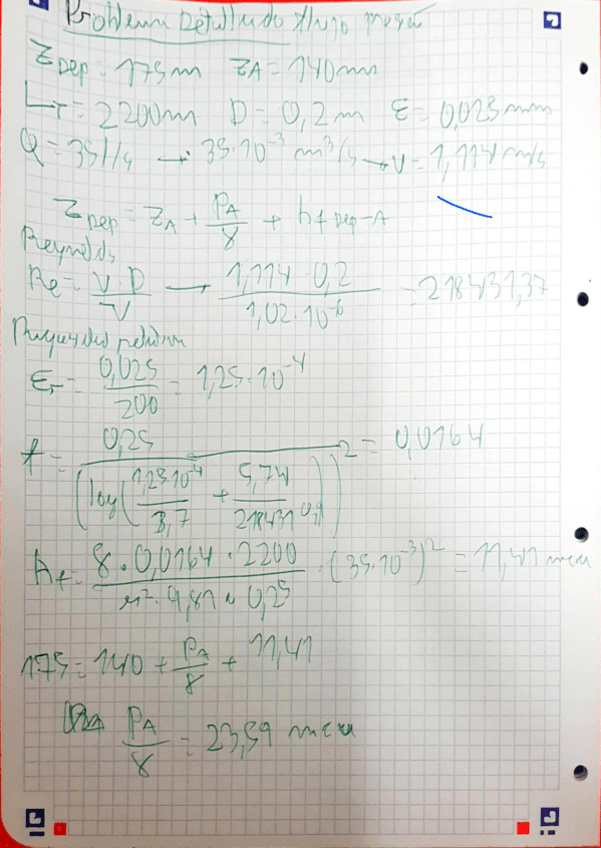 Problema Detallado flujo presión
Z_Dep = 175m Z_A = 140m
L_T = 2200m D = 0,2 m ε = 0,025 mm
Q = 35 l/s → 35·10^-3 m^3/s → v = 1,114 m/s
Z_Dep = Z_A + P_A/γ + h_f Dep-A
Reynolds
Re = V·D/ν → 1,114·0,2/1,02·10^-6 = 218431,37
Rugosidad relativa
ε_r = 0,025/200 = 1,25·10^-4
f = 0,25/(log(1,25·10^-4/3,7 + 5,74/218431^0,9))^2 = 0,0164
h_f = 8·0,0164·2200/π^2·9,81·0,2^5 · (35·10^-3)^2 = 11,41 mca
175 = 140 + P_A/γ + 11,41
P_A/γ = 23,59 mca